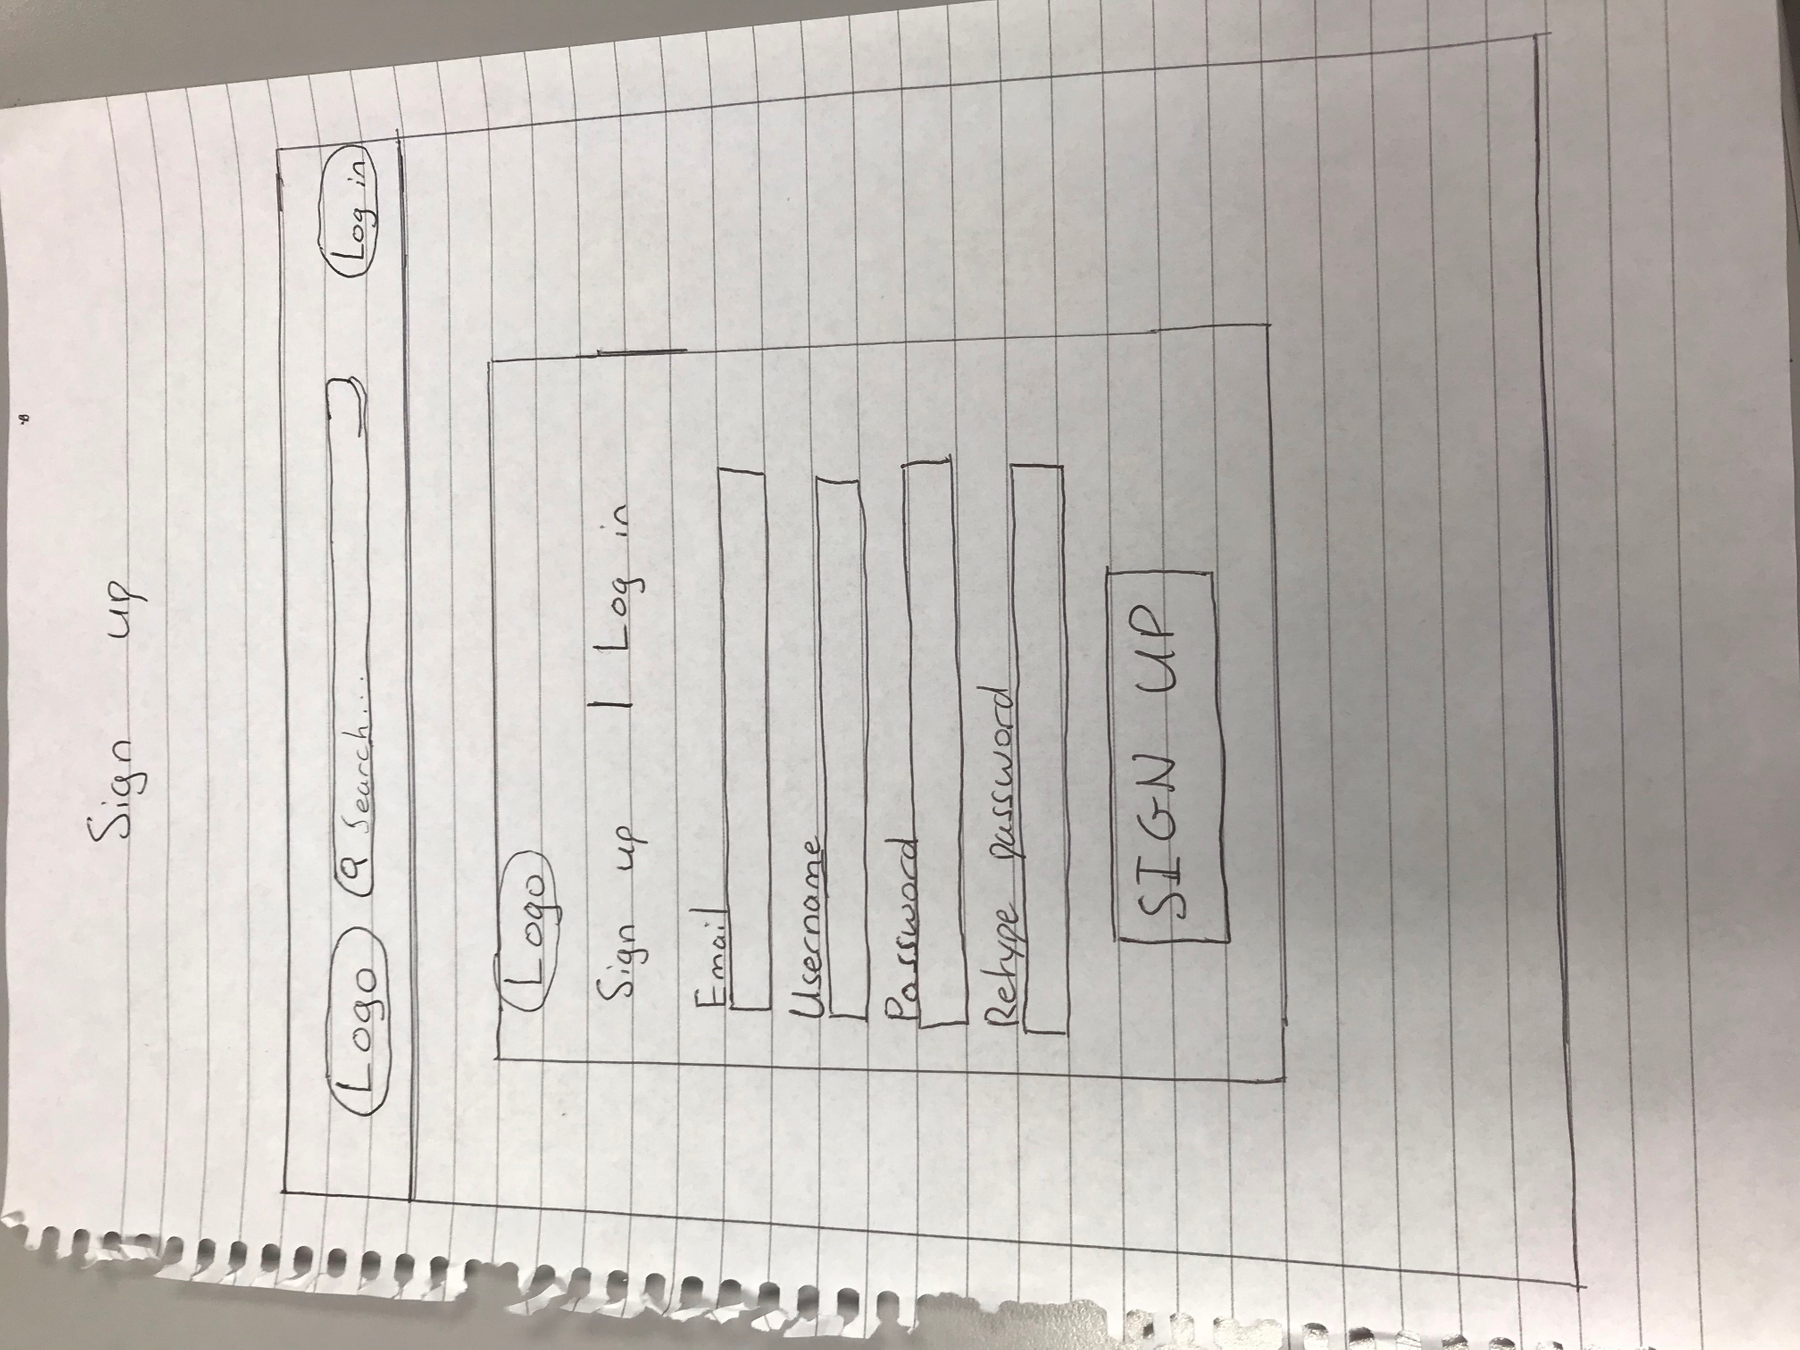 Sign up
Logo Search... Log in
Logo
Sign up | Log in
Email
Username
Password
Retype password
SIGN UP